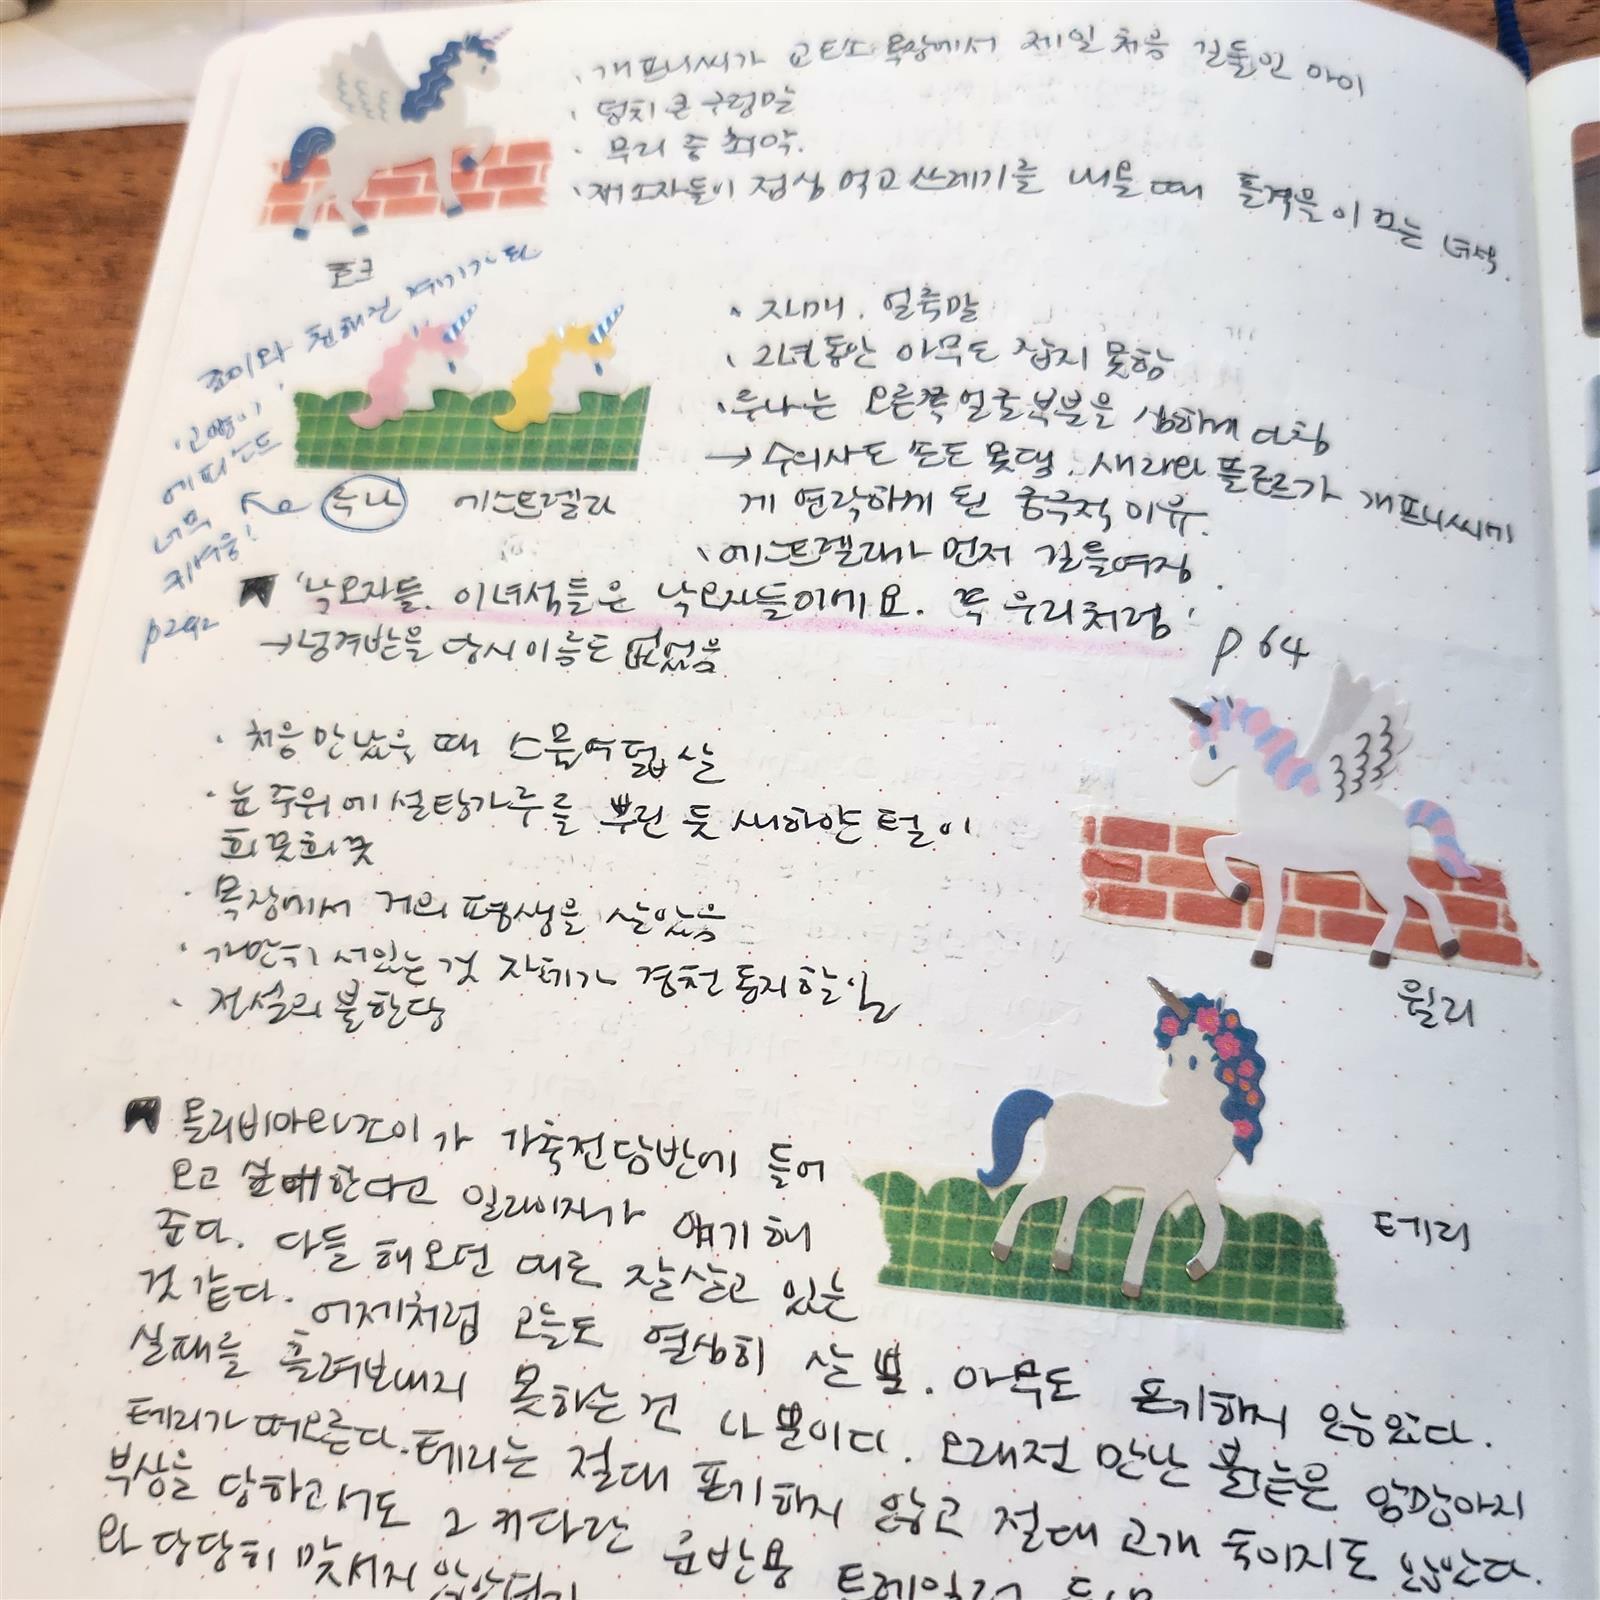 · 개프니씨가 교도소 목장에서 제일 처음 길들인 아이
· 덩치 큰 구렁말
· 무리 중 최약.
· 재소자들이 점심 먹고 쓰레기를 내올 때 품격을 이 모는 녀석.
호크
· 자매. 얼룩말
· 2년동안 아무도 잡지 못함
· 루나는 오른쪽 얼굴부분을 심하게 다침
→ 수의사도 손도 못댐. 새라와 플로르가 개프니씨에
게 연락하게 된 궁극적 이유.
· 에스트렐라가 먼저 길들여짐.
조이와 친해진 계기가 된
'고양이'
에피소드
너무
귀여움!
p242
루나
에스트렐라
'낙오자들. 이녀석들은 낙오자들이에요. 꼭 우리처럼' p.64
→ 넘겨받을 당시 이름도 없었음
· 처음 만났을 때 스물여덟 살
· 눈 주위에 설탕가루를 뿌린 듯 새하얀 털이
희끗희끗
· 목장에서 거의 평생을 살았음
· 가만히 서있는 것 자체가 경천동지할 일
· 전설의 불한당
윌리
올리비아와 조이가 가축전담반에 들어
오고 싶어한다고 일라이자가 얘기해
준다. 다들 해오던 대로 잘 살고 있는
것 같다. 어제처럼 오늘도 열심히 살 뿐. 아무도 포기하지 않았다.
실패를 흘려보내지 못하는 건 나 뿐이다. 오래전 만난 붉은 망아지
테리가 떠오른다. 테리는 절대 포기하지 않고 절대 고개 숙이지도 않았다.
부상을 당하고서도 그 커다란 운반용 트레일러
와 당당히 맞서지 않았던가
테리